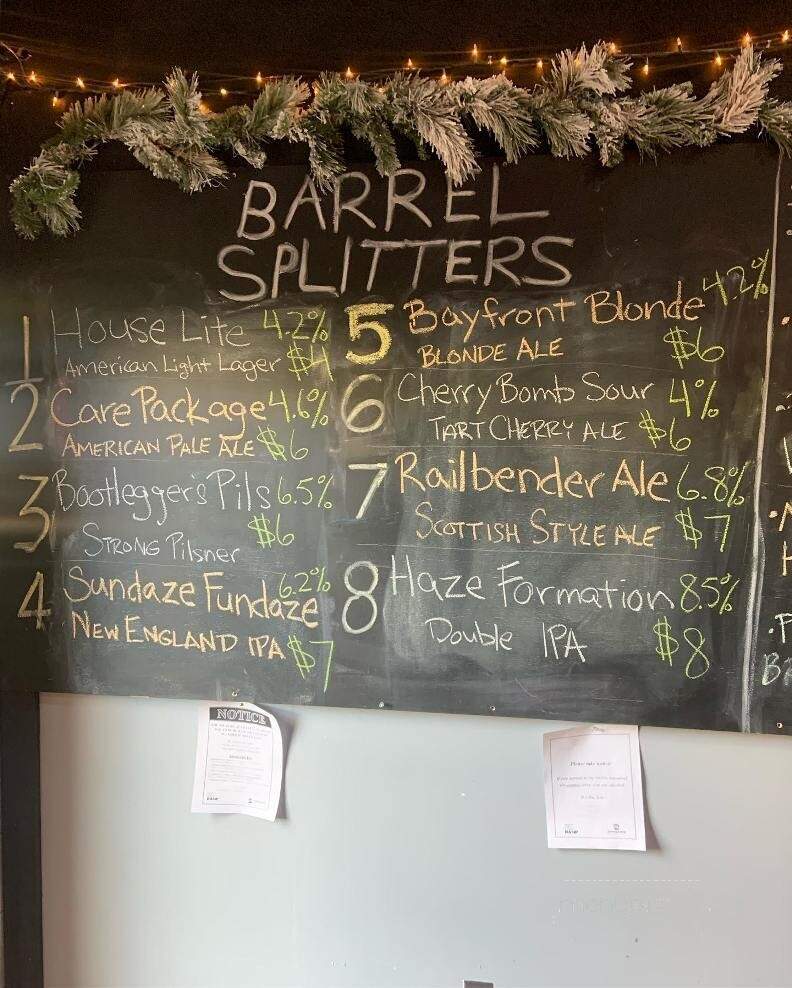 BARREL
SPLITTERS
1 House Lite 4.2%
American Light Lager $4
2 Care Package 4.6%
AMERICAN PALE ALE $6
3 Bootlegger's Pils 6.5%
$6
STRONG Pilsner
4 Sundaze Fundaze 6.2%
NEW ENGLAND IPA $7
5 Bayfront Blonde 4.2%
BLONDE ALE $6
6 Cherry Bomb Sour 4%
TART CHERRY ALE $6
7 Railbender Ale 6.8%
SCOTTISH STYLE ALE $7
8 Haze Formation 8.5%
Double IPA $8
NOTICE